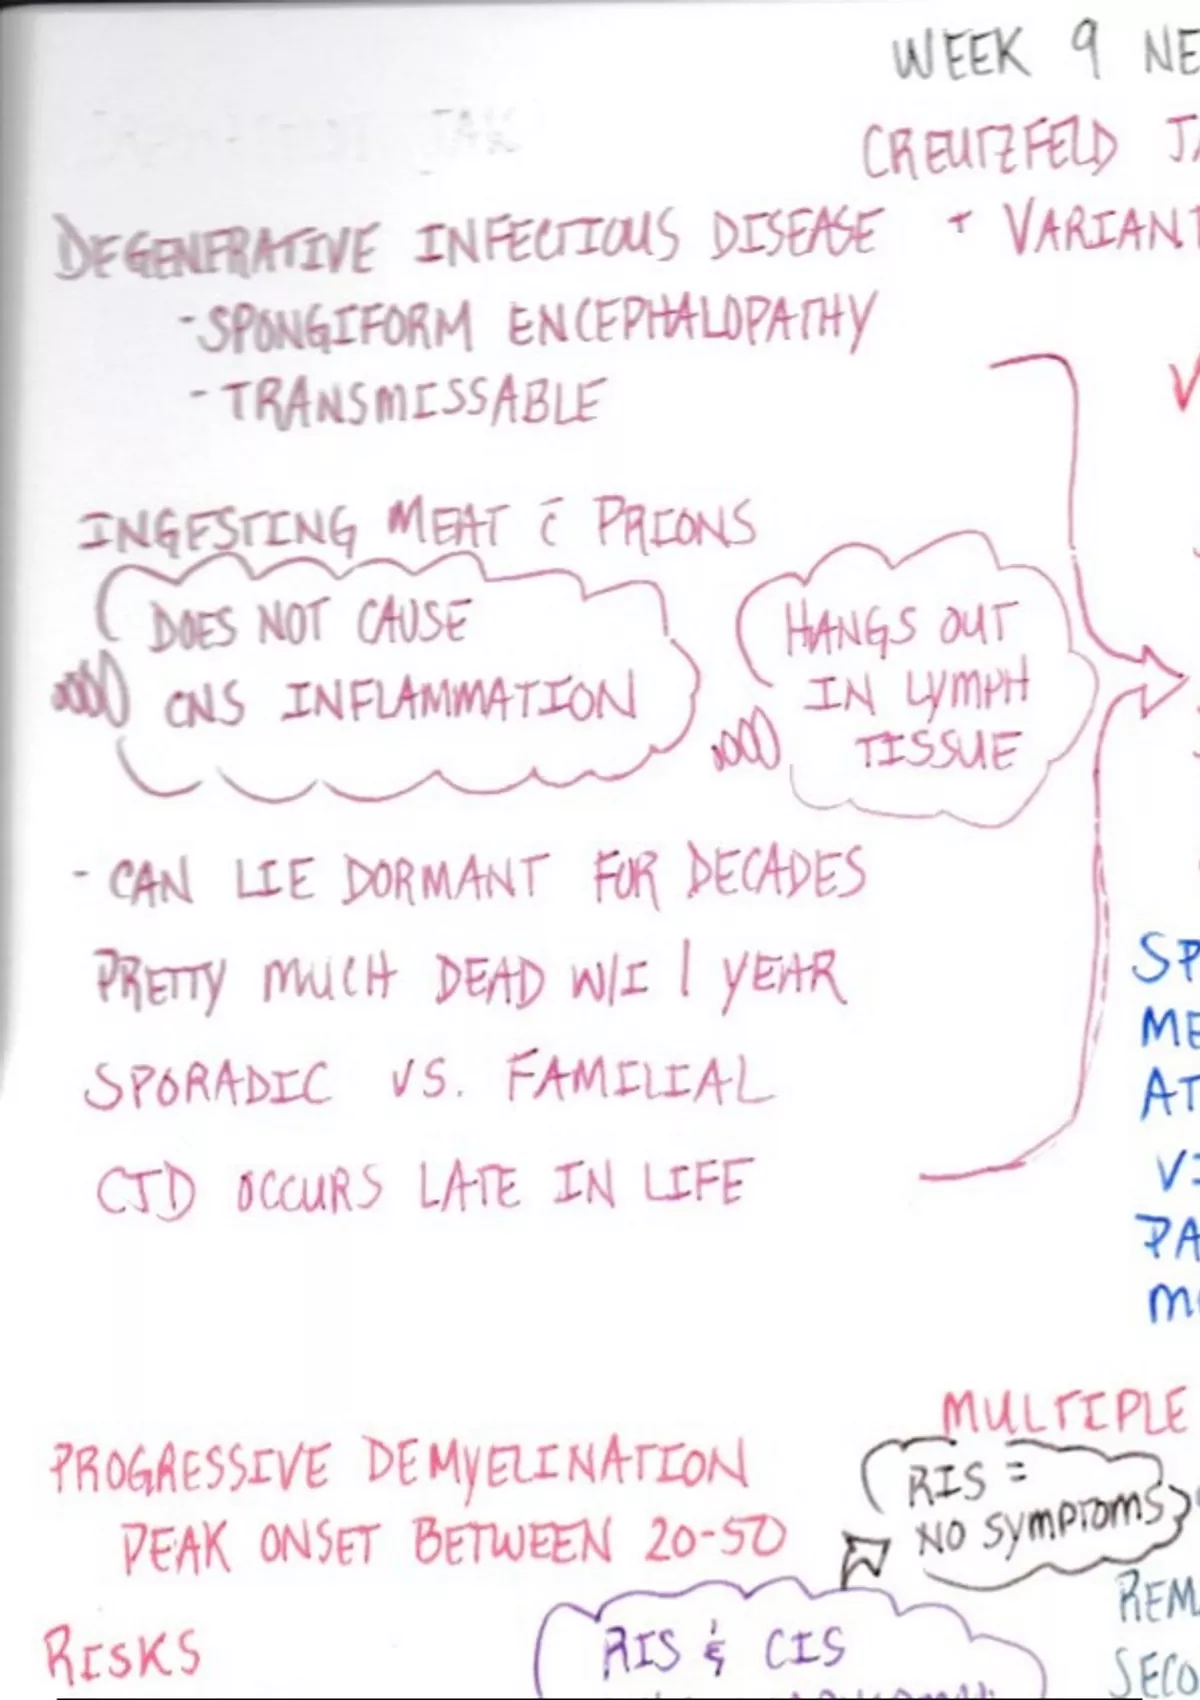 WEEK 9 NE
CREUTZFELD JA
DEGENERATIVE INFECTIOUS DISEASE + VARIANT
- SPONGIFORM ENCEPHALOPATHY
- TRANSMISSABLE
INGESTING MEAT c̄ PRIONS
DOES NOT CAUSE
CNS INFLAMMATION
HANGS OUT
IN LYMPH
TISSUE
- CAN LIE DORMANT FOR DECADES
PRETTY MUCH DEAD W/I 1 YEAR
SPORADIC VS. FAMILIAL
CJD OCCURS LATE IN LIFE
SP
ME
AT
VI
PA
MO
MULTIPLE
PROGRESSIVE DEMYELINATION
PEAK ONSET BETWEEN 20-50
RIS =
NO SYMPTOMS
RISKS
RIS & CIS
REM
SECO